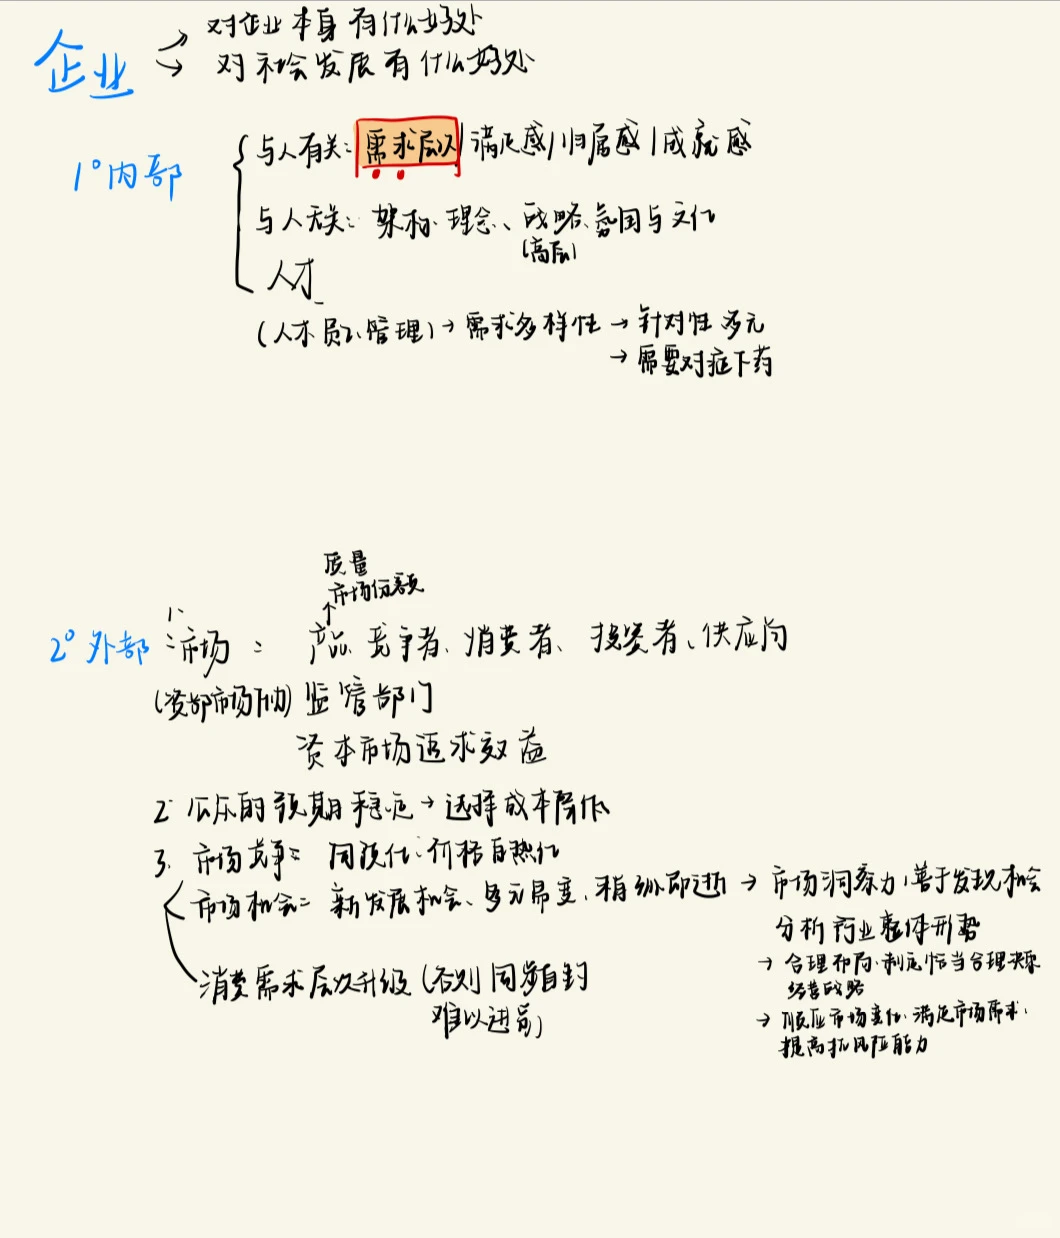 企业 → 对企业本身有什么好处
→ 对社会发展有什么好处
1° 内部
与人有关: 需求层次/满足感/归属感/成就感
与人无关: 架构、理念、战略、氛围与文化
(高层)
人才
(人才、员工、管理) → 需求多样性 → 针对性 多元
→ 需要对症下药
质量
↑市场份额
2° 外部 1. 市场: 产品、竞争者、消费者、投资者、供应商
监管部门
资本市场追求效益
2. 公众的预期稳定 → 选择成本降低
3. 市场竞争: 同质化、价格白热化
市场机会: 新发展机会、多元易变、稍纵即逝 → 市场洞察力,善于发现机会
分析行业整体形势
→ 合理布局、制定恰当合理决策
经营战略
→ 顺应市场变化、满足市场需求、
提高抗风险能力
消费需求层次升级 (否则同步自钓
难以进(